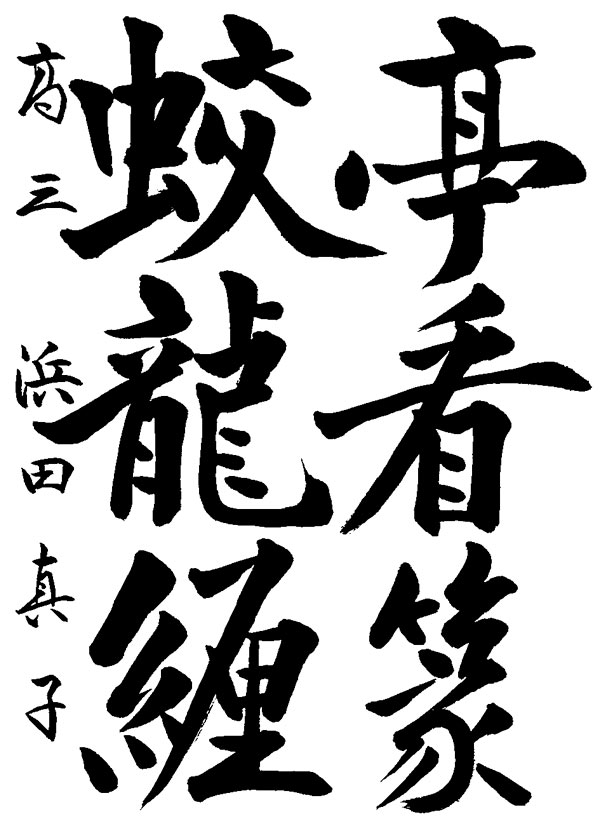 亭看篆
蛟龍纏
高三 浜田真子